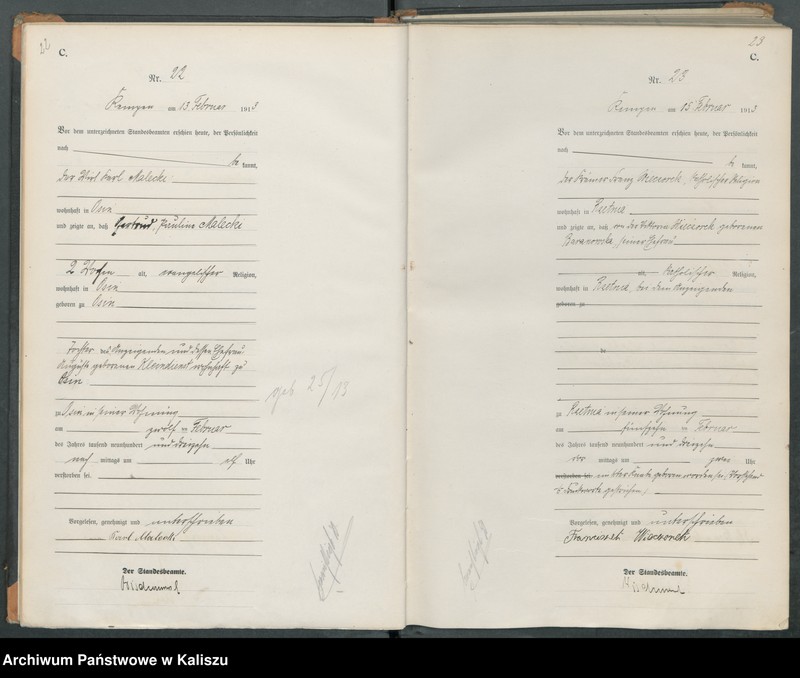 22
C.
Nr. 22
Kempen am 13. Februar 1913
Vor dem unterzeichneten Standesbeamten erschien heute, der Persönlichkeit
nach
be kannt,
der Wirt Karl Malecke
wohnhaft in Osin
und zeigte an, daß Gertrud, Pauline Malecke
2 Wochen alt, evangelischer Religion,
wohnhaft in Osin
geboren zu Osin
Tochter des Anzeigenden und dessen Ehefrau
Auguste geborenen Kleindienst wohnhaft zu
Osin
zu Osin in seiner Wohnung
am zwölf ten Februar
des Jahres tausend neunhundert und dreizehn
nach mittags um elf Uhr
verstorben sei.
geb. 25/13
Vorgelesen, genehmigt und unterschrieben
Karl Malecki
Der Standesbeamte.
23
C.
Nr. 23
Kempen am 15. Februar 1913
Vor dem unterzeichneten Standesbeamten erschien heute, der Persönlichkeit
nach
be kannt,
der Krämer Franz Wieczorek, katholischer Religion
wohnhaft in
und zeigte an, daß von der Wieczorek geborenen
seiner Ehefrau
alt, katholischer Religion,
wohnhaft in bei dem Anzeigenden
geboren zu
de
zu in seiner Wohnung
am fünfzehn ten Februar
des Jahres tausend neunhundert und dreizehn
vor mittags um zwei Uhr
verstorben sei. ein toter Knabe geboren worden sei.
Vorgelesen, genehmigt und unterschrieben
Franciszek Wieczorek
Der Standesbeamte.
Archiwum Państwowe w Kaliszu